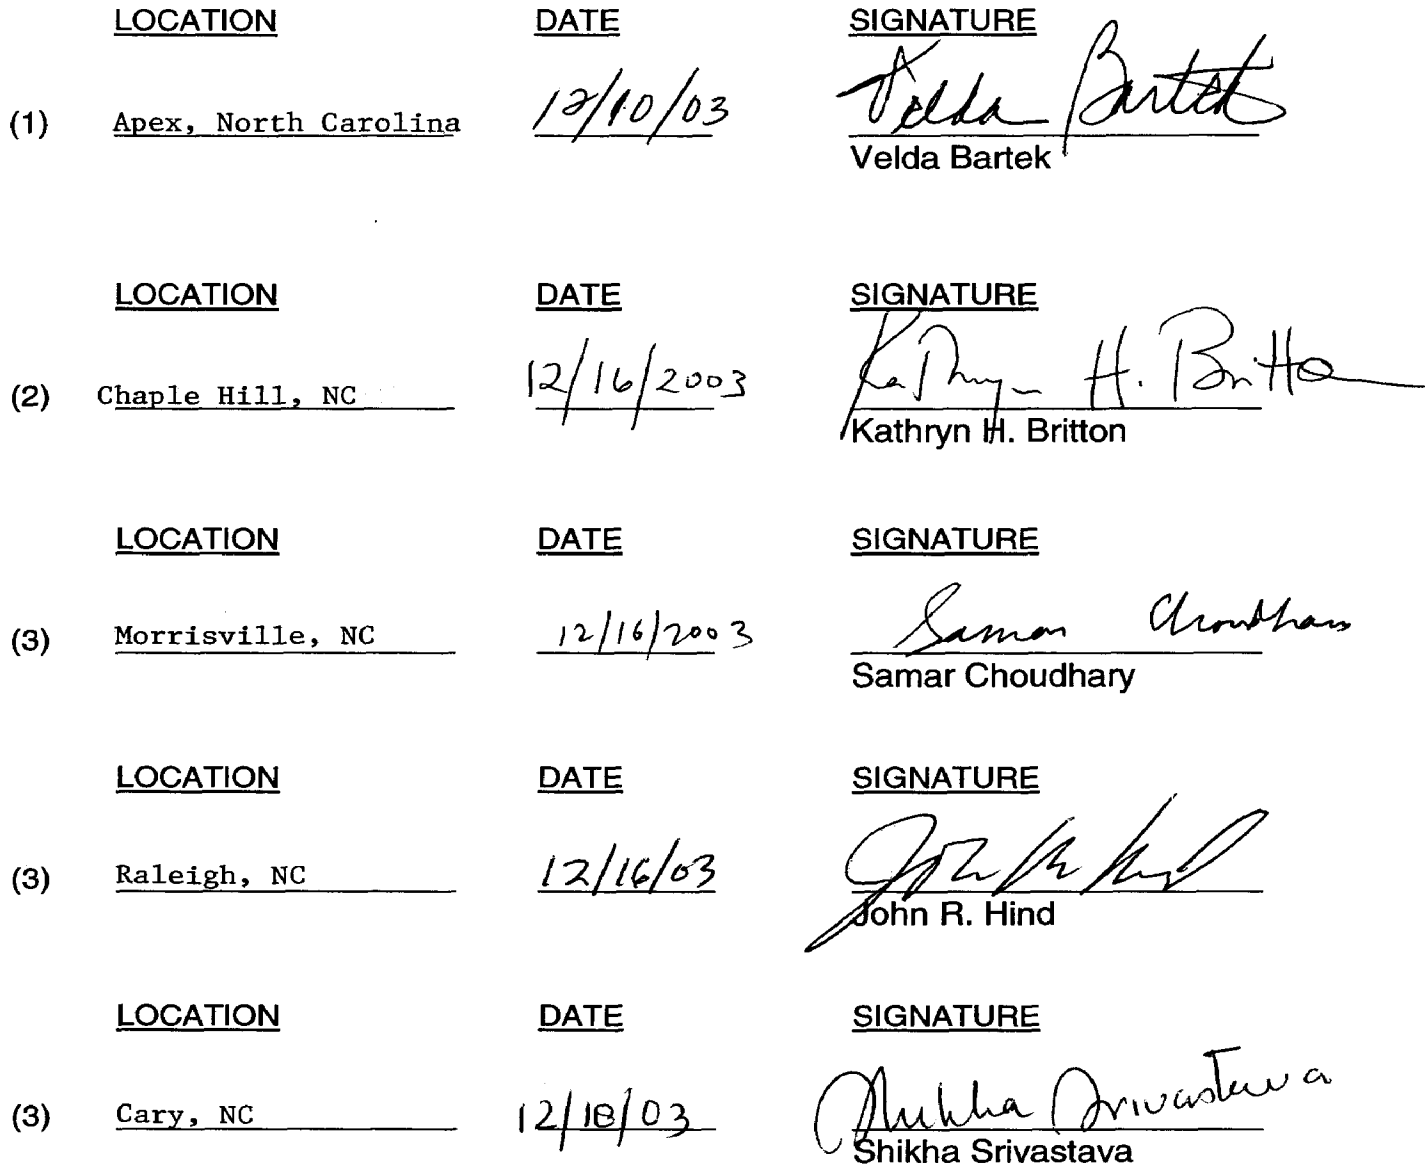 LOCATION DATE SIGNATURE
(1) Apex, North Carolina 12/10/03 Velda Bartek
Velda Bartek
LOCATION DATE SIGNATURE
(2) Chaple Hill, NC 12/16/2003 Kathryn H. Britton
Kathryn H. Britton
LOCATION DATE SIGNATURE
(3) Morrisville, NC 12/16/2003 Samar Choudhary
Samar Choudhary
LOCATION DATE SIGNATURE
(3) Raleigh, NC 12/16/03 John R Hind
John R. Hind
LOCATION DATE SIGNATURE
(3) Cary, NC 12/18/03 Shikha Srivastava
Shikha Srivastava